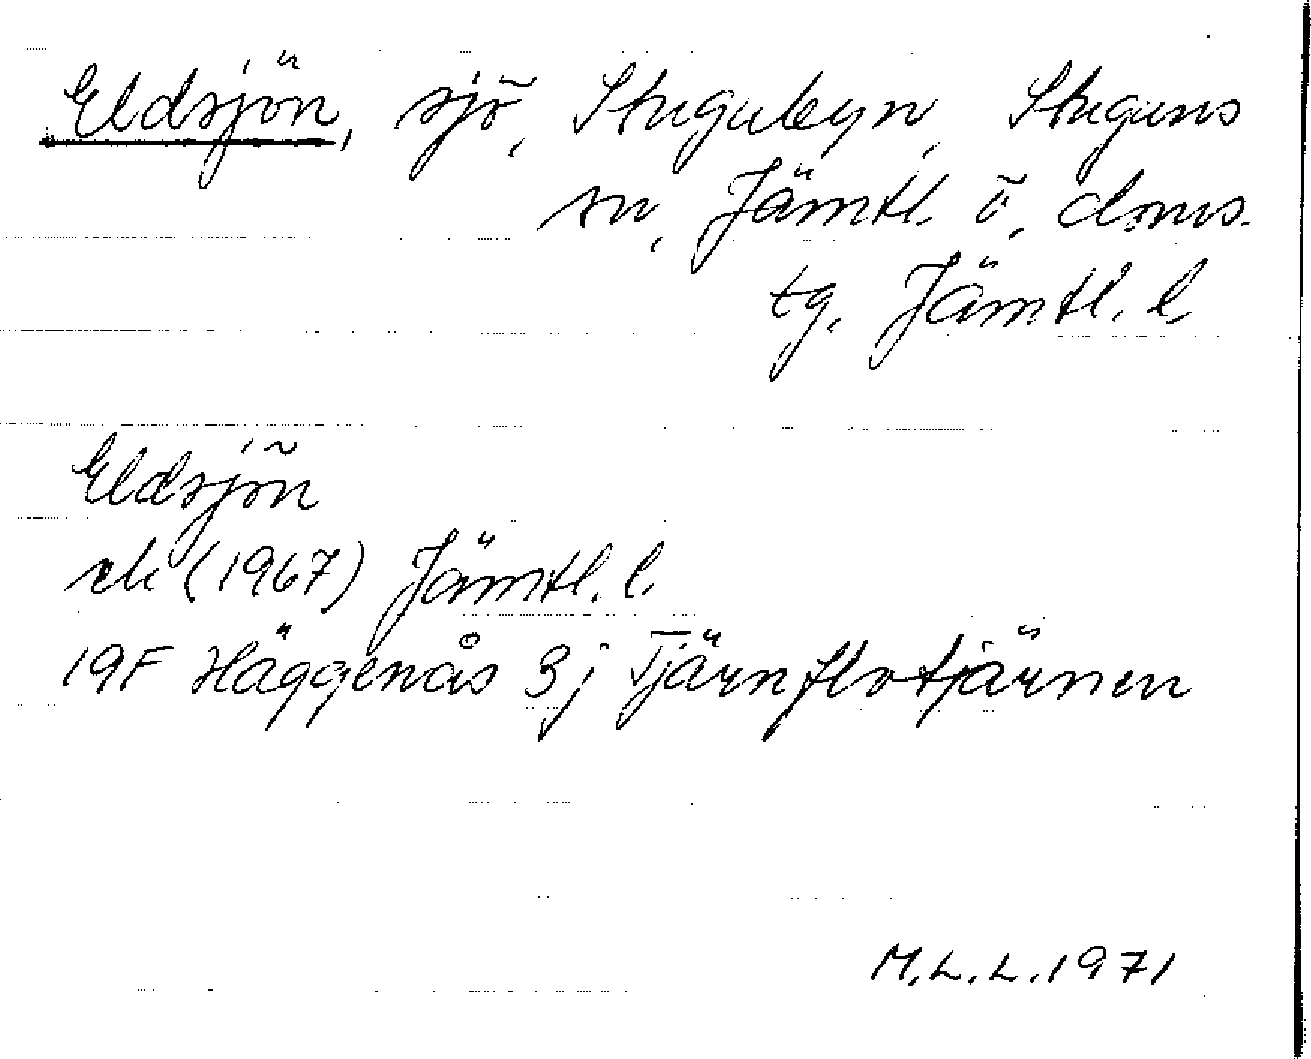 Eldsjön, sjö, Stugubyn, Stuguns
sn, Jämtl. ö. doms.
tg, Jämtl. l.
Eldsjön
ek (1967) Jämtl. l.
19F Häggenås 3j Tjärnflotjärnen
M.L.L. 1971